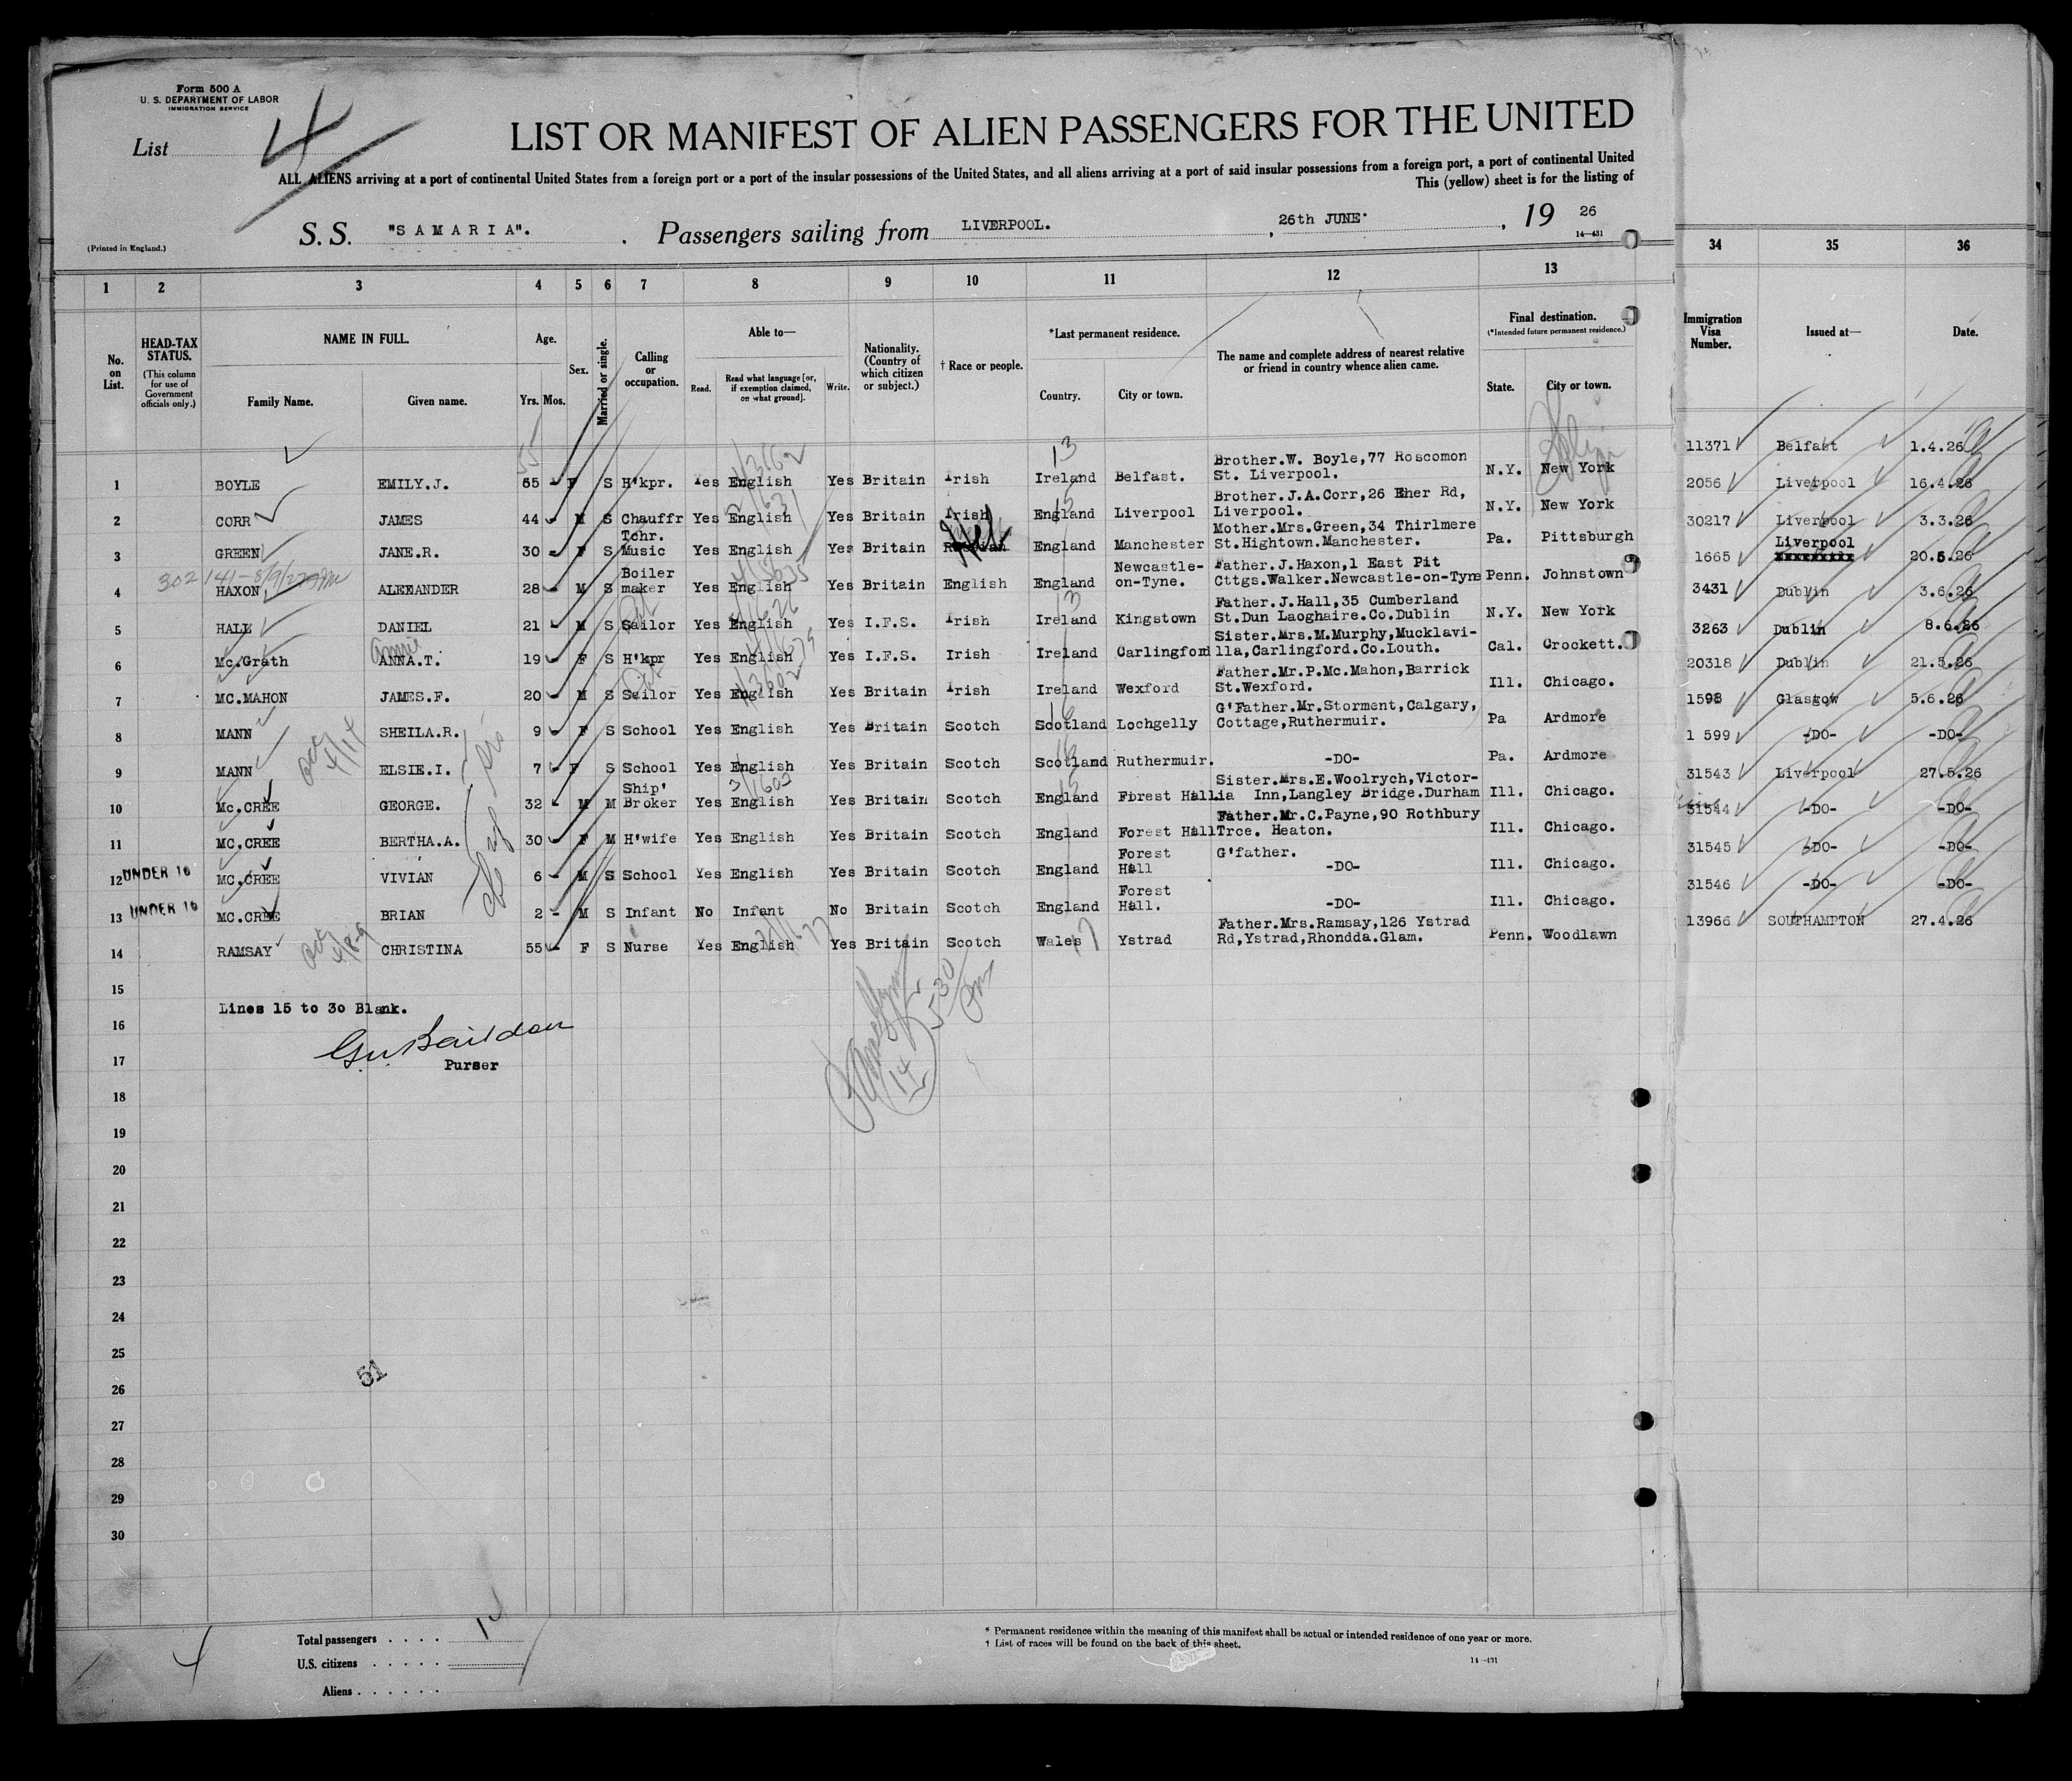 Form 500 A
U. S. DEPARTMENT OF LABOR
IMMIGRATION SERVICE
List 4
LIST OR MANIFEST OF ALIEN PASSENGERS FOR THE UNITED
ALL ALIENS arriving at a port of continental United States from a foreign port or a port of the insular possessions of the United States, and all aliens arriving at a port of said insular possessions from a foreign port, a port of continental United
This (yellow) sheet is for the listing of
S. S. "SAMARIA". Passengers sailing from LIVERPOOL. , 26th JUNE , 19 26
(Printed in England.)
14-431
1 2 3 4 5 6 7 8 9 10 11 12 13 34 35 36
No. on List.
HEAD-TAX STATUS.
(This column for use of Government officials only.)
NAME IN FULL.
Family Name. Given name.
Age.
Yrs. Mos.
Sex.
Married or single.
Calling or occupation.
Able to—
Read. Read what language [or, if exemption claimed, on what ground]. Write.
Nationality. (Country of which citizen or subject.)
† Race or people.
*Last permanent residence.
Country. City or town.
The name and complete address of nearest relative or friend in country whence alien came.
Final destination.
(*Intended future permanent residence.)
State. City or town.
Immigration Visa Number. Issued at— Date.
1 BOYLE EMILY.J. 55 F S H'kpr. Yes English Yes Britain Irish Ireland Belfast. Brother.W. Boyle,77 Roscomon St. Liverpool. N.Y. New York 11371 Belfast 1.4.26
2 CORR JAMES 44 M S Chauffr Yes English Yes Britain Irish England Liverpool Brother.J.A.Corr,26 Eher Rd, Liverpool. N.Y. New York 2056 Liverpool 16.4.26
3 GREEN JANE.R. 30 F S Tchr. Music Yes English Yes Britain England Manchester Mother.Mrs.Green,34 Thirlmere St.Hightown.Manchester. Pa. Pittsburgh 30217 Liverpool 3.3.26
302 141-
4 HAXON ALEXANDER 28 M S Boiler maker Yes English Yes Britain English England Newcastle-on-Tyne. Father.J.Haxon,1 East Pit Cttgs.Walker.Newcastle-on-Tyne Penn. Johnstown 1665 Liverpool 20.5.26
5 HALL DANIEL 21 M S Sailor Yes English Yes I.F.S. Irish Ireland Kingstown Father.J.Hall,35 Cumberland St.Dun Laoghaire.Co.Dublin N.Y. New York 3431 Dublin 3.6.26
Annie
6 Mc.Grath ANNA.T. 19 F S H'kpr Yes English Yes I.F.S. Irish Ireland Carlingford Sister.Mrs.M.Murphy,Mucklavi-lla,Carlingford.Co.Louth. Cal. Crockett. 3263 Dublin 8.6.26
7 MC.MAHON JAMES.F. 20 M S Sailor Yes English Yes Britain Irish Ireland Wexford Father.Mr.P.Mc.Mahon,Barrick St.Wexford. Ill. Chicago. 20318 Dublin 21.5.26
8 MANN SHEILA.R. 9 F S School Yes English Yes Britain Scotch Scotland Lochgelly G'Father.Mr.Storment,Calgary, Cottage,Ruthermuir. Pa Ardmore 1598 Glasgow 5.6.26
9 MANN ELSIE.I. 7 F S School Yes English Yes Britain Scotch Scotland Ruthermuir. -DO- Pa. Ardmore 1 599 -DO- -DO-
10 Mc.CREE GEORGE. 32 M M Ship' Broker Yes English Yes Britain Scotch England Forest Hall Sister.Mrs.E.Woolrych,Victor-ia Inn,Langley Bridge.Durham Ill. Chicago. 31543 Liverpool 27.5.26
11 MC.CREE BERTHA.A. 30 F M H'wife Yes English Yes Britain Scotch England Forest Hall Father.Mr.C.Payne,90 Rothbury Trce. Heaton. Ill. Chicago. 31544 -DO- -DO-
12 UNDER 16 MC.CREE VIVIAN 6 M S School Yes English Yes Britain Scotch England Forest Hall G'father. -DO- Ill. Chicago. 31545 -DO- -DO-
13 UNDER 16 MC.CREE BRIAN 2 M S Infant No Infant No Britain Scotch England Forest Hall. -DO- Ill. Chicago. 31546 -DO- -DO-
14 RAMSAY CHRISTINA 55 F S Nurse Yes English Yes Britain Scotch Wales Ystrad Father.Mrs.Ramsay,126 Ystrad Rd,Ystrad,Rhondda.Glam. Penn. Woodlawn 13966 SOUTHAMPTON 27.4.26
15
Lines 15 to 30 Blank.
16
17
Purser
18
19
20
21
22
23
24
25
51
26
27
28
29
30
Total passengers . . . . 14
U.S. citizens . . . . .
Aliens . . . . . .
4
* Permanent residence within the meaning of this manifest shall be actual or intended residence of one year or more.
† List of races will be found on the back of this sheet.
14-431